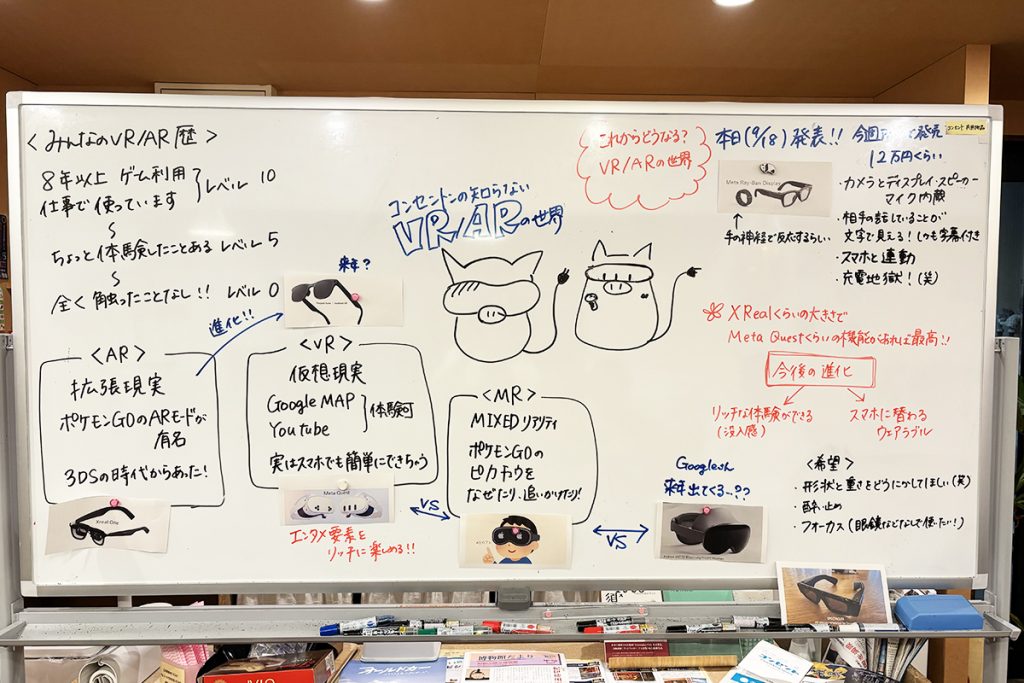 ＜みんなのVR/AR歴＞
8年以上 ゲーム利用
仕事で使っています
レベル 10
〜
ちょっと体験したことある レベル 5
〜
全く触ったことなし!! レベル 0
進化!!
来年?
＜AR＞
拡張現実
ポケモンGOのARモードが
有名
3DSの時代からあった!
Xreal One
＜VR＞
仮想現実
Google MAP
Youtube
体験可
実はスマホでも簡単にできちゃう
Meta Quest
エンタメ要素を
リッチに楽しめる!!
VS
コンセントンの知らない
VR/ARの世界
＜MR＞
MIXEDリアリティ
ポケモンGOの
ピカチュウを
なぜたり、追いかけたり!
VS
これからどうなる?
VR/ARの世界
本日(9/18)発表!!
Meta Ray-Ban Display
手の神経で反応するらしい
今週
発売
12万円くらい
・カメラとディスプレイ・スピーカー
マイク内蔵
・相手の話していることが
文字で見える! しかも字幕付き
・スマホと連動
・充電地獄!(笑)
XRealくらいの大きさで
Meta Questくらいの機能があれば最高!!
今後の進化
リッチな体験ができる
(没入感)
スマホに替わる
ウェアラブル
Googleさん
来年出てくる…??
＜希望＞
・形状と重さをどうにかしてほしい(笑)
・酔い止め
・フォーカス(眼鏡などなしで使いたい!)
オールドカー
博物館だより
コンセント